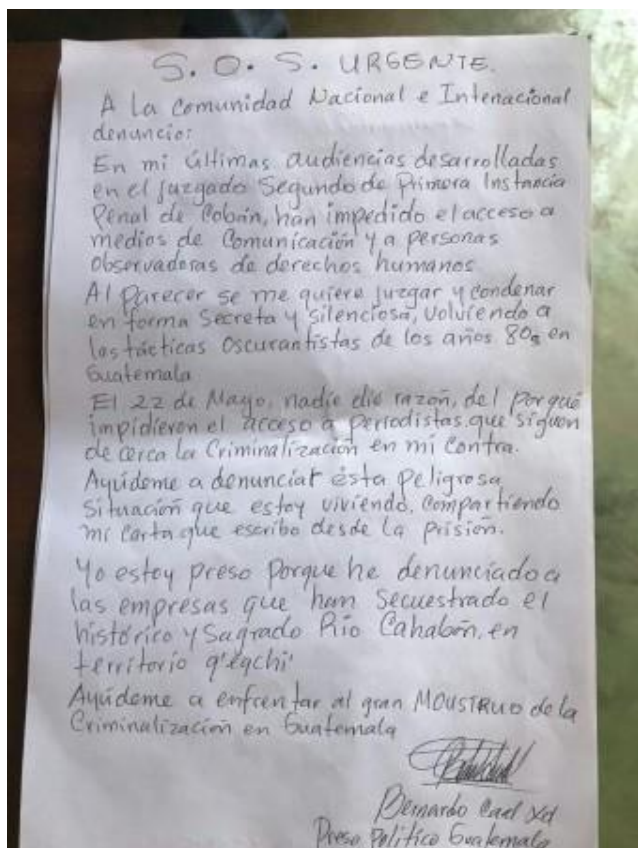 S. O. S. URGENTE.
A La Comunidad Nacional e Intenacional
denuncio:
En mi últimas audiencias desarrolladas
en el juzgado Segundo de Primera Instancia
Penal de Cobán, han impedido el acceso a
medios de Comunicación y a personas
Observadoras de derechos humanos
Al parecer se me quiere juzgar y condenar
en forma Secreta y Silenciosa, volviendo a
las tácticas Oscurantistas de los años 80s en
Guatemala
El 22 de Mayo, nadie dio razón, del porqué
impidieron el acceso a periodistas que siguen
de cerca la Criminalización en mi Contra.
Ayúdeme a denunciar ésta peligrosa
Situación que estoy viviendo, Compartiendo
mi Carta que escribo desde la prisión.
Yo estoy preso porque he denunciado a
las empresas que han Secuestrado el
histórico y Sagrado Río Cahabón, en
territorio q'eqchi'
Ayúdeme a enfrentar al gran MOUSTRUO de la
Criminalización en Guatemala
Bernardo Caal Xol
Preso Político Guatemala